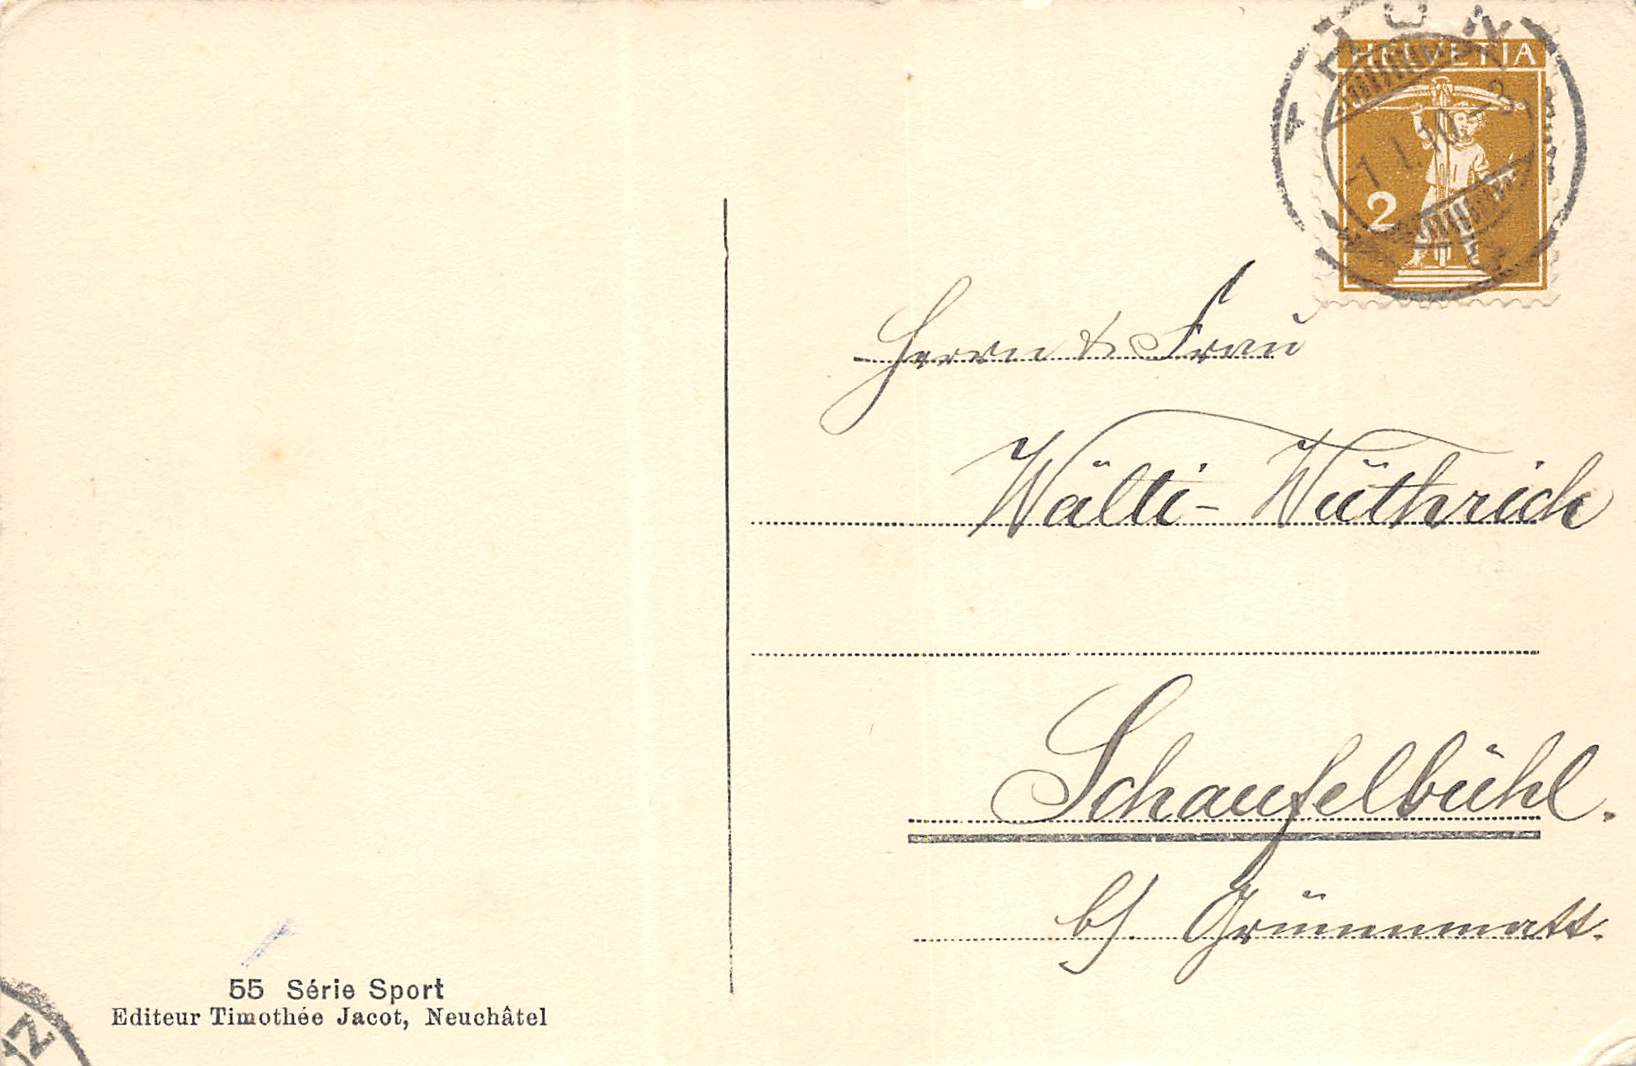 THUN
HELVETIA
2
Herrn & Frau
Wälti-Wüthrich
Schaufelbühl.
bj. Grünenmatt.
55 Série Sport
Editeur Timothée Jacot, Neuchâtel